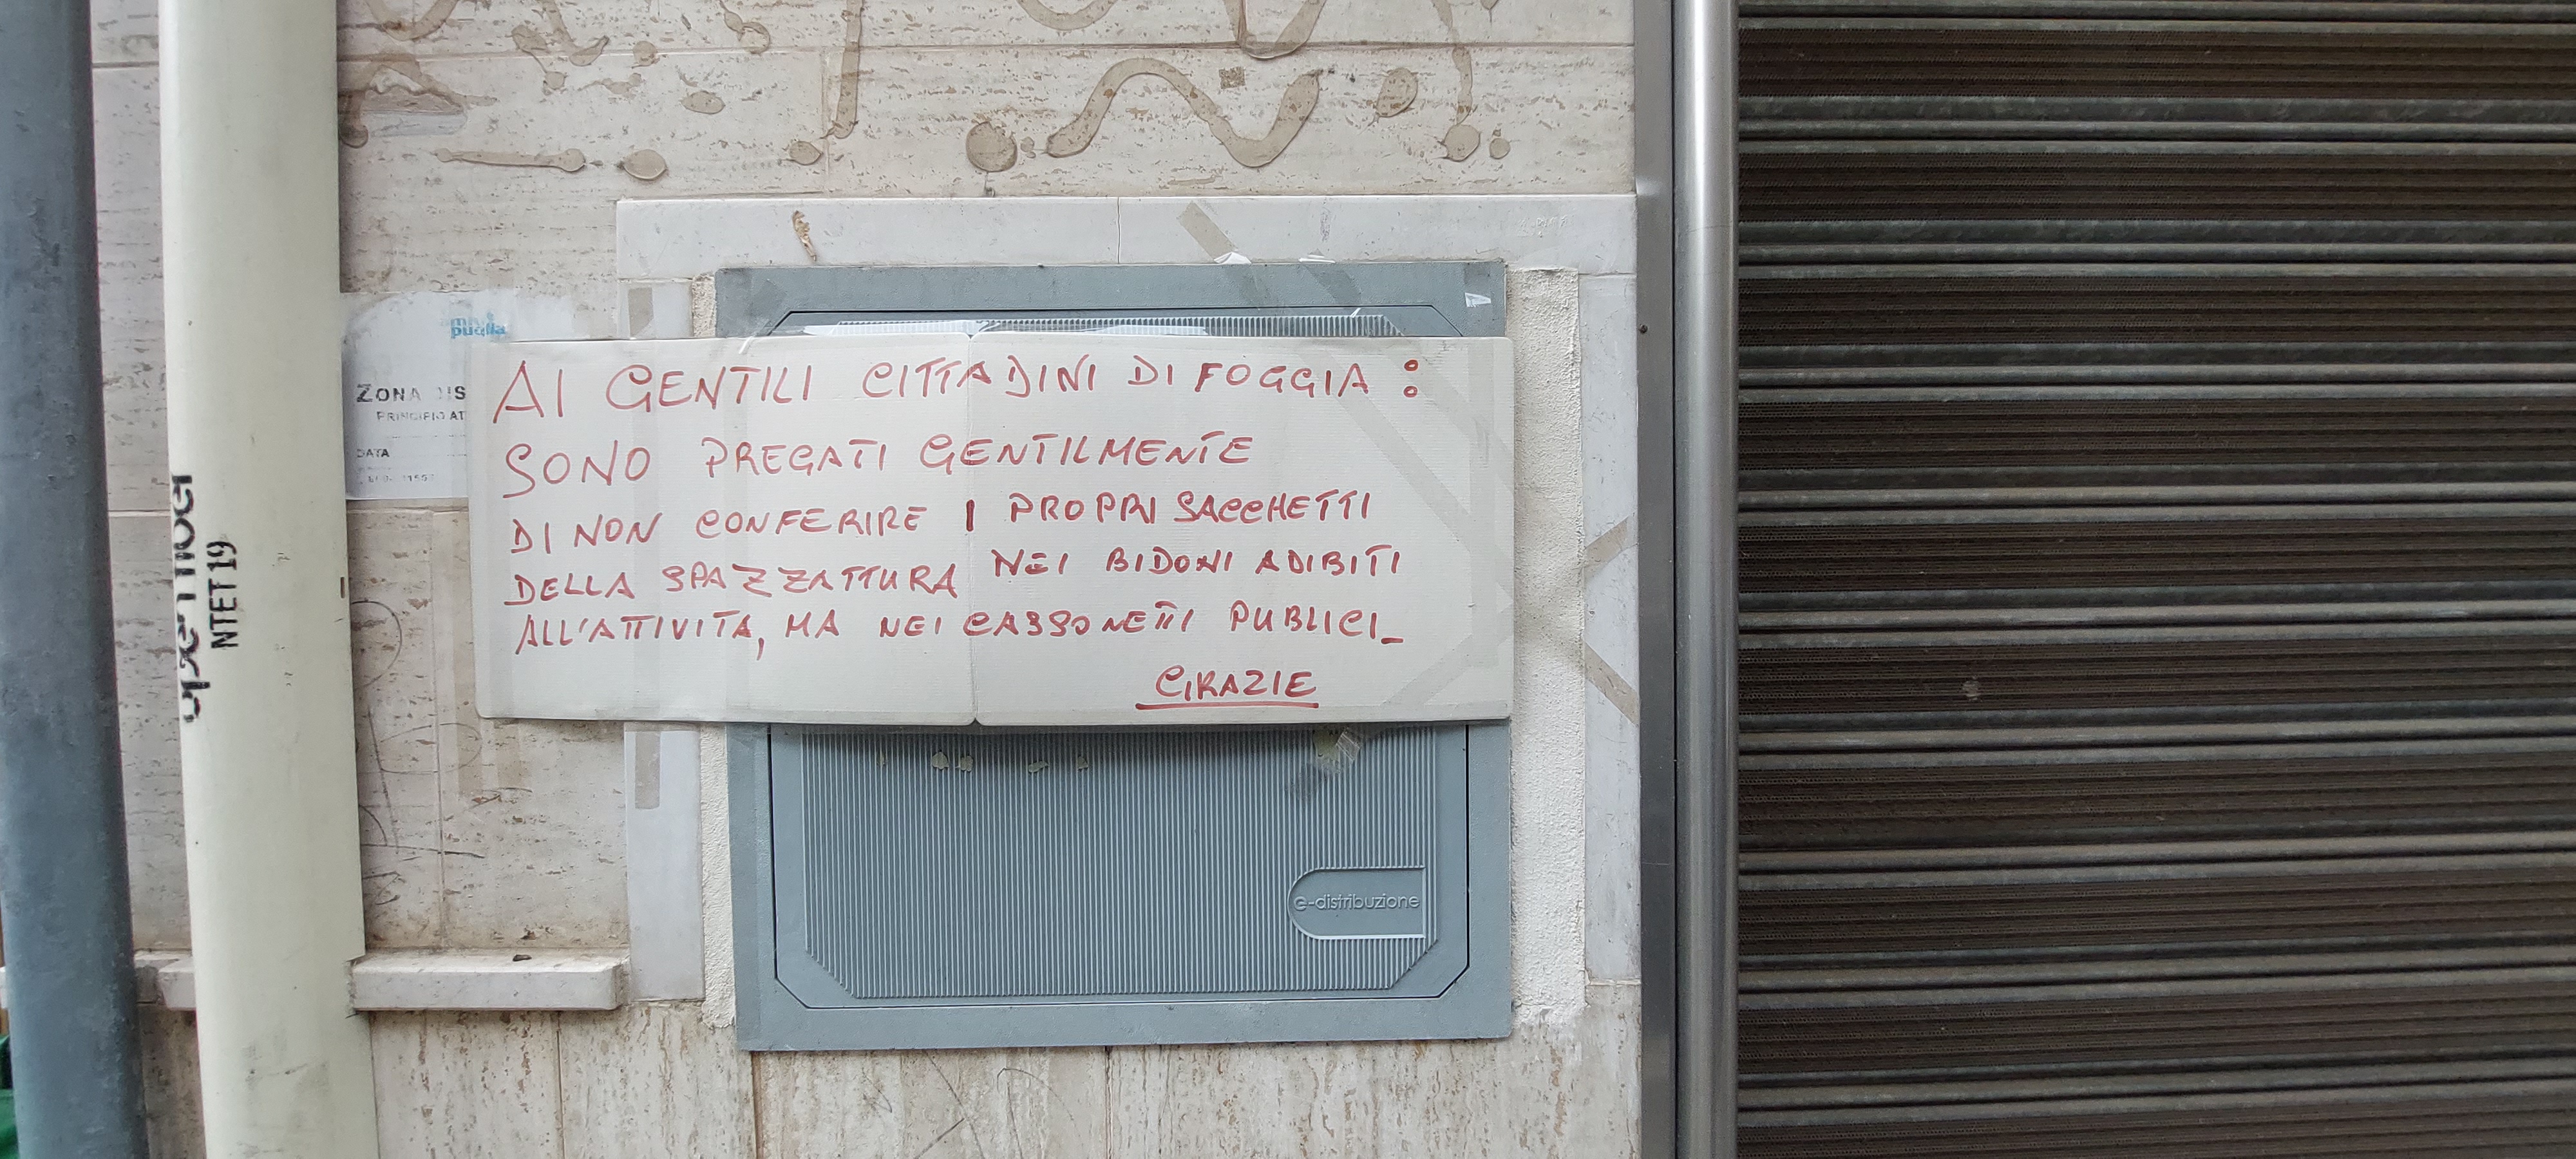 AI GENTILI CITTADINI DI FOGGIA :
SONO PREGATI GENTILMENTE
DI NON CONFERIRE I PROPRI SACCHETTI
DELLA SPAZZATTURA NEI BIDONI ADIBITI
ALL'ATTIVITA, MA NEI CASSONETTI PUBLICI_
GRAZIE
puglia
ZONA
PRINCIPIO AT
DATA
NTET19
e-distribuzione